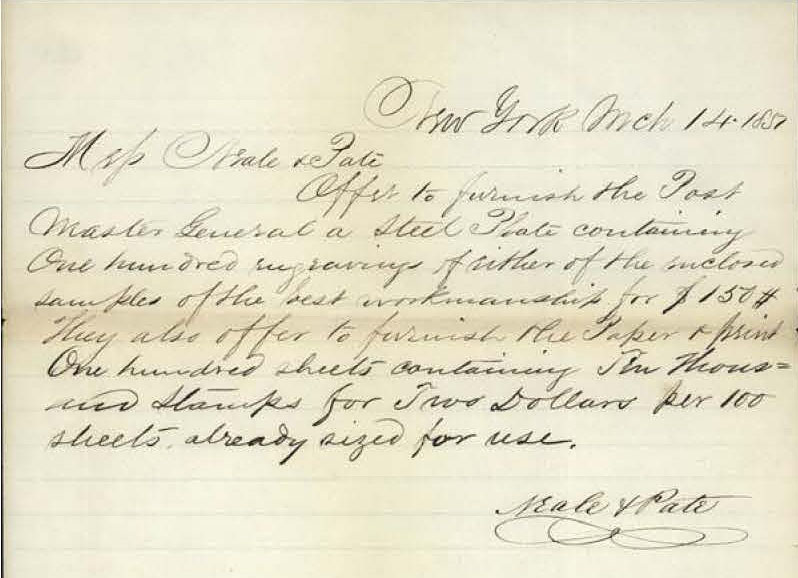 New York Mch. 14. 1851
Mess Neale & Pate
Offer to furnish the Post
Master General a Steel Plate containing
One hundred engravings of either of the enclosed
samples of the best workmanship for $150#
They also offer to furnish the Paper & print
One hundred sheets containing Ten Thous=
and Stamps for Two Dollars per 100
sheets, already sized for use.
Neale & Pate